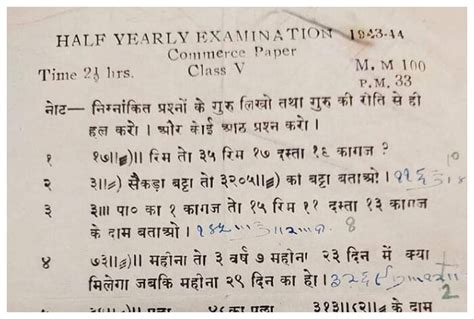 HALF YEARLY EXAMINATION 1943-44
Commerce Paper
Time 2½ hrs. Class V M. M 100
P.M. 33
नोट— निम्नांकित प्रश्नों के गुरु लिखो तथा गुरु की रीति से ही
हल करो। और कोई आठ प्रश्न करो।
१ १७॥≡)॥ रिम तो ३५ रिम १७ दस्ता १६ कागज ?
२ ३॥≡) सैकड़ा बट्टा तो ३२०५॥≡) का बट्टा बताओ।
३ ३॥। पा० का १ कागज तो १५ रिम ११ दस्ता १३ कागज
के दाम बताओ। 8
४ ७३॥≡)॥ महीना तो ३ वर्ष ७ महीना २३ दिन में क्या
मिलेगा जबकि महीना २९ दिन का हो।
2